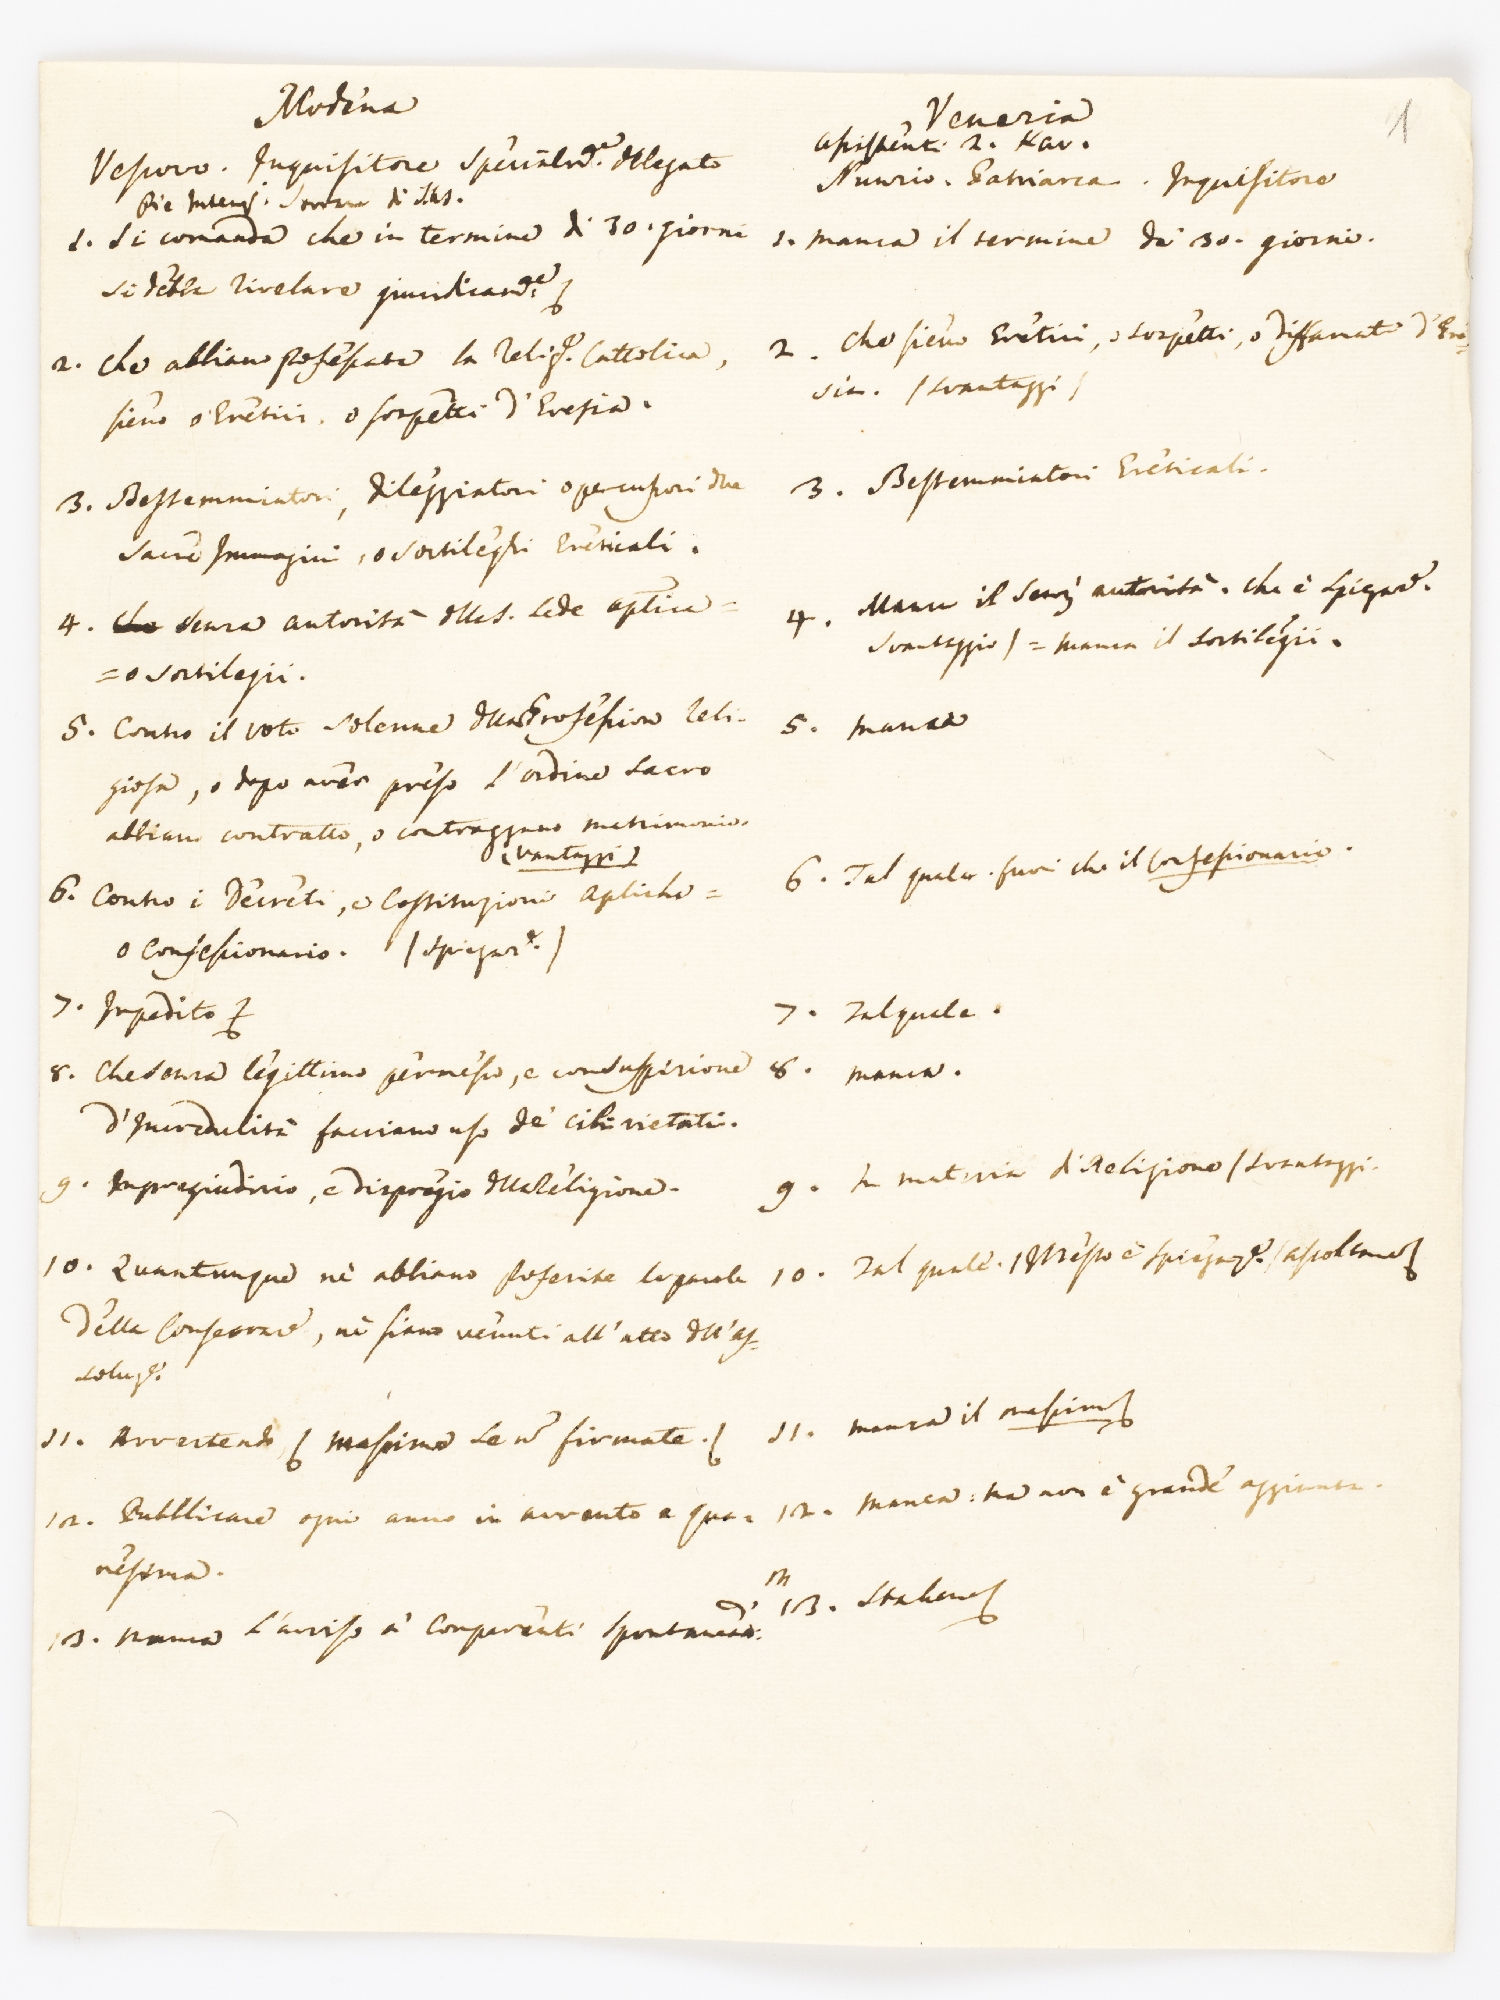 1
Modena
Vescovo. Inquisitore Specialm.e delegato
Pie Intenz.
1. Si comanda che in termine di 30. giorni
si debba rivelare giuridicam.e
2. Che abbiano professata la Relig.e Cattolica,
sieno o Eretici, o sospetti d'Eresia.
3. Bestemmiatori, dileggiatori o percussori due
Sacre Immagini, o Sortileghi Ereticali.
4. che senza autorità della S. Sede aptica =
= o sortilegii.
5. Contro il voto solenne della Professione Reli-
giosa, o dopo aver preso l'ordine Sacro
abbiano contratto, o contraggano matrimonio.
(vantaggi)
6. Contro i Decreti, e Costituzioni Apliche =
o Confessionario. (spiegaz.e)
7. Impedito
8. Che senza legittimo permesso, e con suspizione
d'Incredulità facciano uso de' cibi vietati.
9. In pregiudizio, e dispregio della Religione.
10. Quantunque nè abbiano proferite le parole
della Consecraz.e, nè siano venuti all'atto dell'as=
soluz.e
11. Avvertendo massime se n.e firmate.
12. Pubblicare ogni anno in avvento e qua=
resima.
13. manca l'avviso a' Comparenti Spontanei
Venezia
Assistenti 2. Kav.
Nunzio. Patriarca. Inquisitore
1. manca il termine de' 30. giorni.
2. Che sieno Eretici, o sospetti, o diffamati d'Ere=
sia. (svantaggi)
3. Bestemmiatori Ereticali.
4. Manca il senz' autorità. che è spiegaz.e
svantaggio) = manca il sortilegii.
5. manca
6. Tal quale. fuori che il Confessionario.
7. Tal quale.
8. manca.
9. In materia di Religione (svantaggi.
10. Tal quale. è spiegaz.e (ascoltano
11. manca il massime
12. manca: ma non è grande aggiunta.
13.